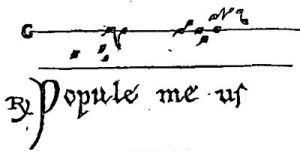 G
℟ Popule me us